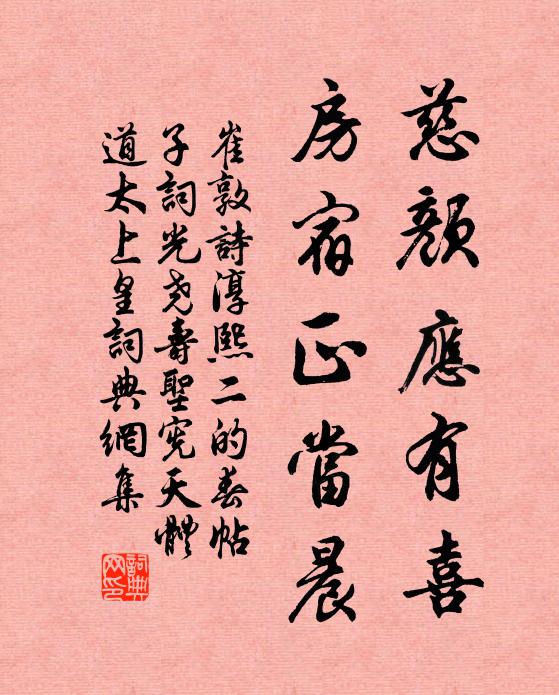 慈顏應有喜
房宿正當晨
崔敦詩淳熙二的春帖
子詞光尧壽聖宪天體
道太上皇詞典網集
詞典网印